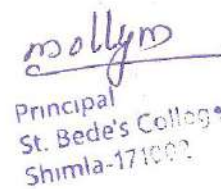 mollym
Principal
St. Bede's College
Shimla-171002